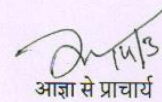 आज्ञा से प्राचार्य